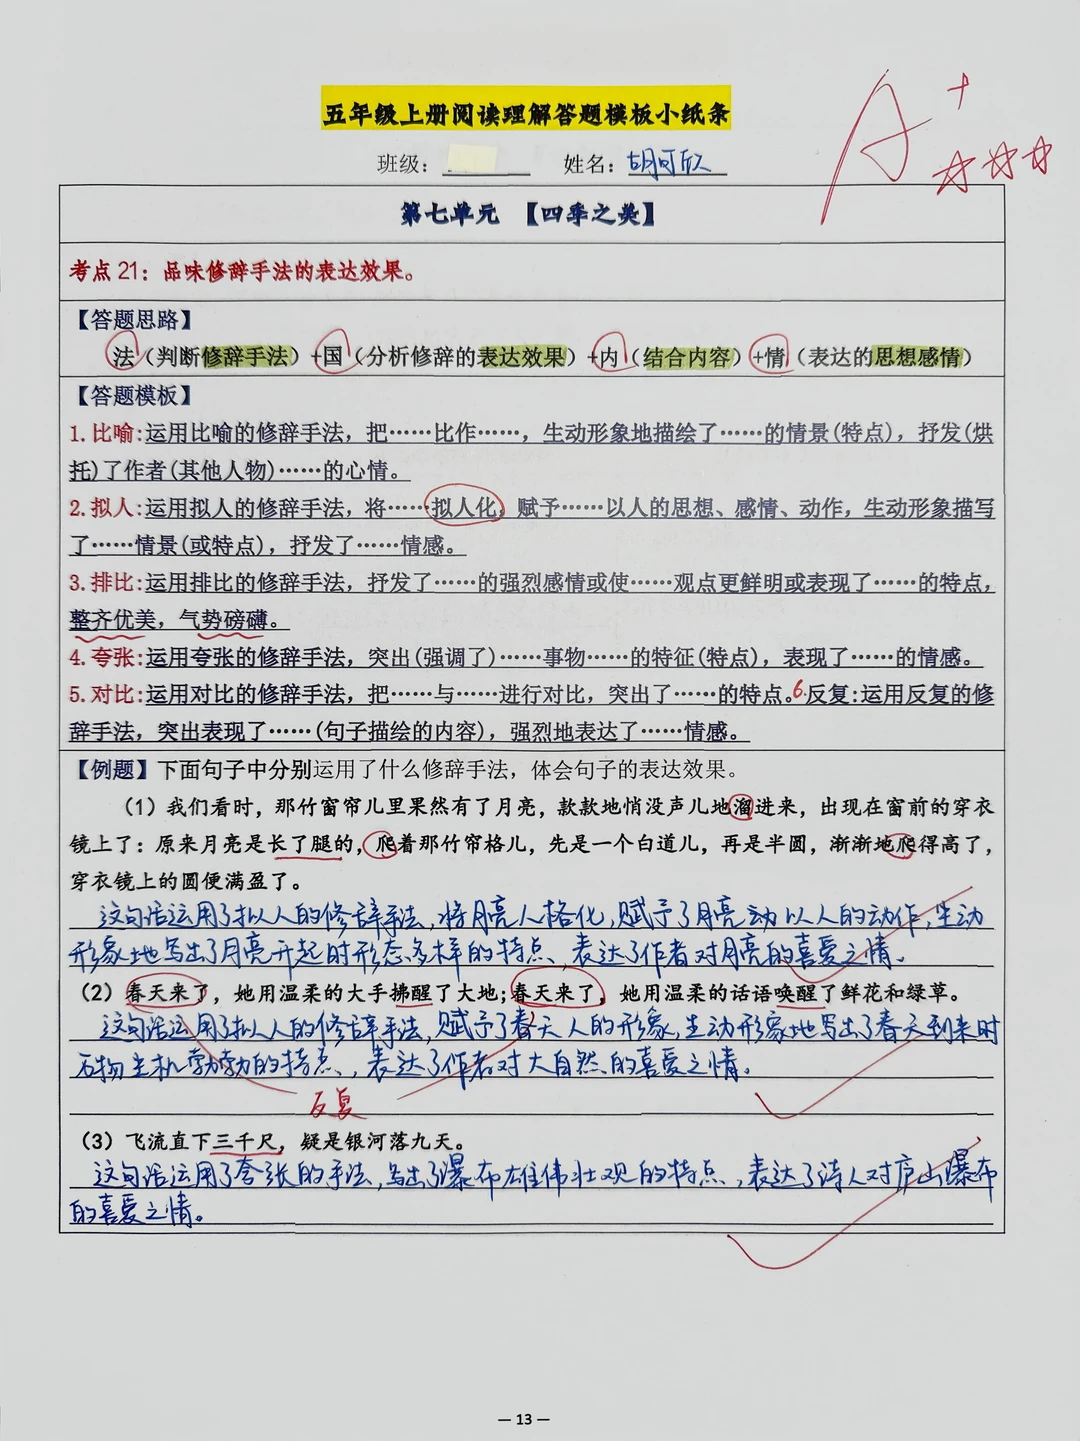 五年级上册阅读理解答题模板小纸条
A+
☆☆☆
班级： 姓名：胡可欣
第七单元 【四季之美】
考点 21：品味修辞手法的表达效果。
【答题思路】
法（判断修辞手法）+国（分析修辞的表达效果）+内（结合内容）+情（表达的思想感情）
【答题模板】
1.比喻:运用比喻的修辞手法，把……比作……，生动形象地描绘了……的情景(特点)，抒发(烘
托)了作者(其他人物)……的心情。
2.拟人:运用拟人的修辞手法，将……拟人化，赋予……以人的思想、感情、动作，生动形象描写
了……情景(或特点)，抒发了……情感。
3.排比:运用排比的修辞手法，抒发了……的强烈感情或使……观点更鲜明或表现了……的特点，
整齐优美，气势磅礴。
4.夸张:运用夸张的修辞手法，突出(强调了)……事物……的特征(特点)，表现了……的情感。
5.对比:运用对比的修辞手法，把……与……进行对比，突出了……的特点。6.反复:运用反复的修
辞手法，突出表现了……(句子描绘的内容)，强烈地表达了……情感。
【例题】下面句子中分别运用了什么修辞手法，体会句子的表达效果。
（1）我们看时，那竹窗帘儿里果然有了月亮，款款地悄没声儿地溜进来，出现在窗前的穿衣
镜上了：原来月亮是长了腿的，爬着那竹帘格儿，先是一个白道儿，再是半圆，渐渐地爬得高了，
穿衣镜上的圆便满盈了。
这句话运用了拟人的修辞手法，将月亮人格化，赋予了月亮动以人的动作，生动
形象地写出了月亮升起时形态多样的特点，表达了作者对月亮的喜爱之情。
（2）春天来了，她用温柔的大手拂醒了大地;春天来了，她用温柔的话语唤醒了鲜花和绿草。
这句话运用了拟人的修辞手法，赋予了春天人的形象，生动形象地写出了春天到来时
万物生机勃勃的特点，表达了作者对大自然的喜爱之情。
反复
（3）飞流直下三千尺，疑是银河落九天。
这句话运用了夸张的手法，写出了瀑布雄伟壮观的特点，表达了诗人对庐山瀑布
的喜爱之情。
— 13 —